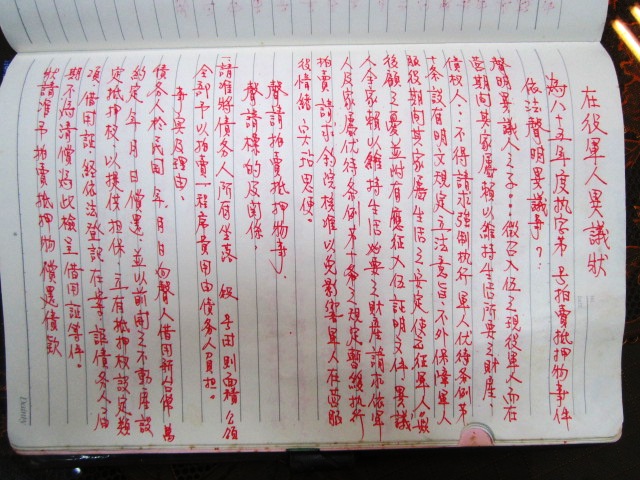 在役軍人異議狀
為八十五年度執字第 号拍賣抵押物事件
依法聲明異議事?:
聲明異議人之子:: 徵召入伍之現役軍人而在
期間其家屬賴以維持生活所要之財產,
債权人: 不得請求強制执行 軍人优待条例第
十条設有明文規定立法意旨: 不外保障軍人
服役期間其家屬生活之安定使召征軍人無
後顧之憂並附有應征入伍証明文件 異議
人全家賴以維持生活必要之財產請求依軍
人及家屬优待条例第十条之規定暫緩执行
拍賣 請求 鈞院核准以免影響軍人在营服
役情緒 实為恩便。
聲請拍賣抵押物事,
聲請標的及関係。
請准將債务人所有坐落 段 号田則面積公頃
全部予以拍賣 程序費用由債务人負担。
事实及理由,
債务人於民國 年 月 日向聲人借用新台幣 萬
約定 年 月 日償還, 並以前開之不動產設
定抵押权, 以提供担保 立有抵押权設定
項 借用証, 経依法登記在案 誰債务人屆
期不為清償為此檢呈借用証等件。
狀請准予拍賣抵押物 償還債款
Dainty